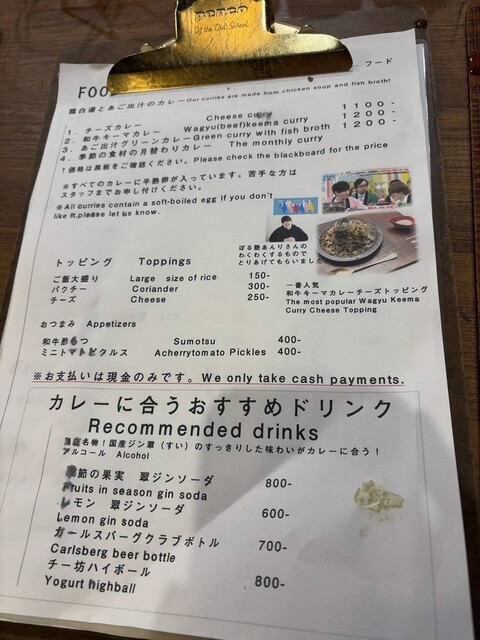 Of the Old School
FOO
フード
鶏白湯とあご出汁のカレー Our curries are made from chicken soup and fish broth!
1. チーズカレー Cheese curry 1100-
2. 和牛キーマカレー Wagyu(beef)keema curry 1200-
3. あご出汁グリーンカレーGreen curry with fish broth 1200-
4. 季節の食材の月替わりカレー The monthly curry
↑価格は黒板をご確認ください。Please check the blackboard for the price
※すべてのカレーに半熟卵が入っています。苦手な方は
スタッフまでお申し付けください。
※All curries contain a soft-boiled egg If you don't
like it,please let us know.
ぼる塾あんりさんの
わくわくするもので
とりあげてもらいました
トッピング Toppings
ご飯大盛り Large size of rice 150-
パクチー Coriander 300-
チーズ Cheese 250-
一番人気
和牛キーマカレーチーズトッピング
The most popular Wagyu Keema
Curry Cheese Topping
おつまみ Appetizers
和牛酢もつ Sumotsu 400-
ミニトマトピクルス Acherrytomato Pickles 400-
※お支払いは現金のみです。We only take cash payments.
カレーに合うおすすめドリンク
Recommended drinks
当店名物！国産ジン翠（すい）のすっきりした味わいがカレーに合う！
アルコール Alcohol
季節の果実 翠ジンソーダ 800-
Fruits in season gin soda
レモン 翠ジンソーダ 600-
Lemon gin soda
カールスバーグクラブボトル 700-
Carlsberg beer bottle
チー坊ハイボール 800-
Yogurt highball